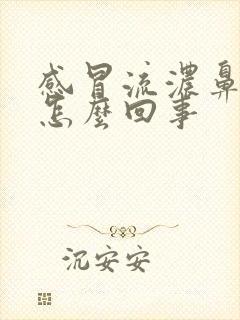 感冒流濃鼻
怎麼回事
沉安安